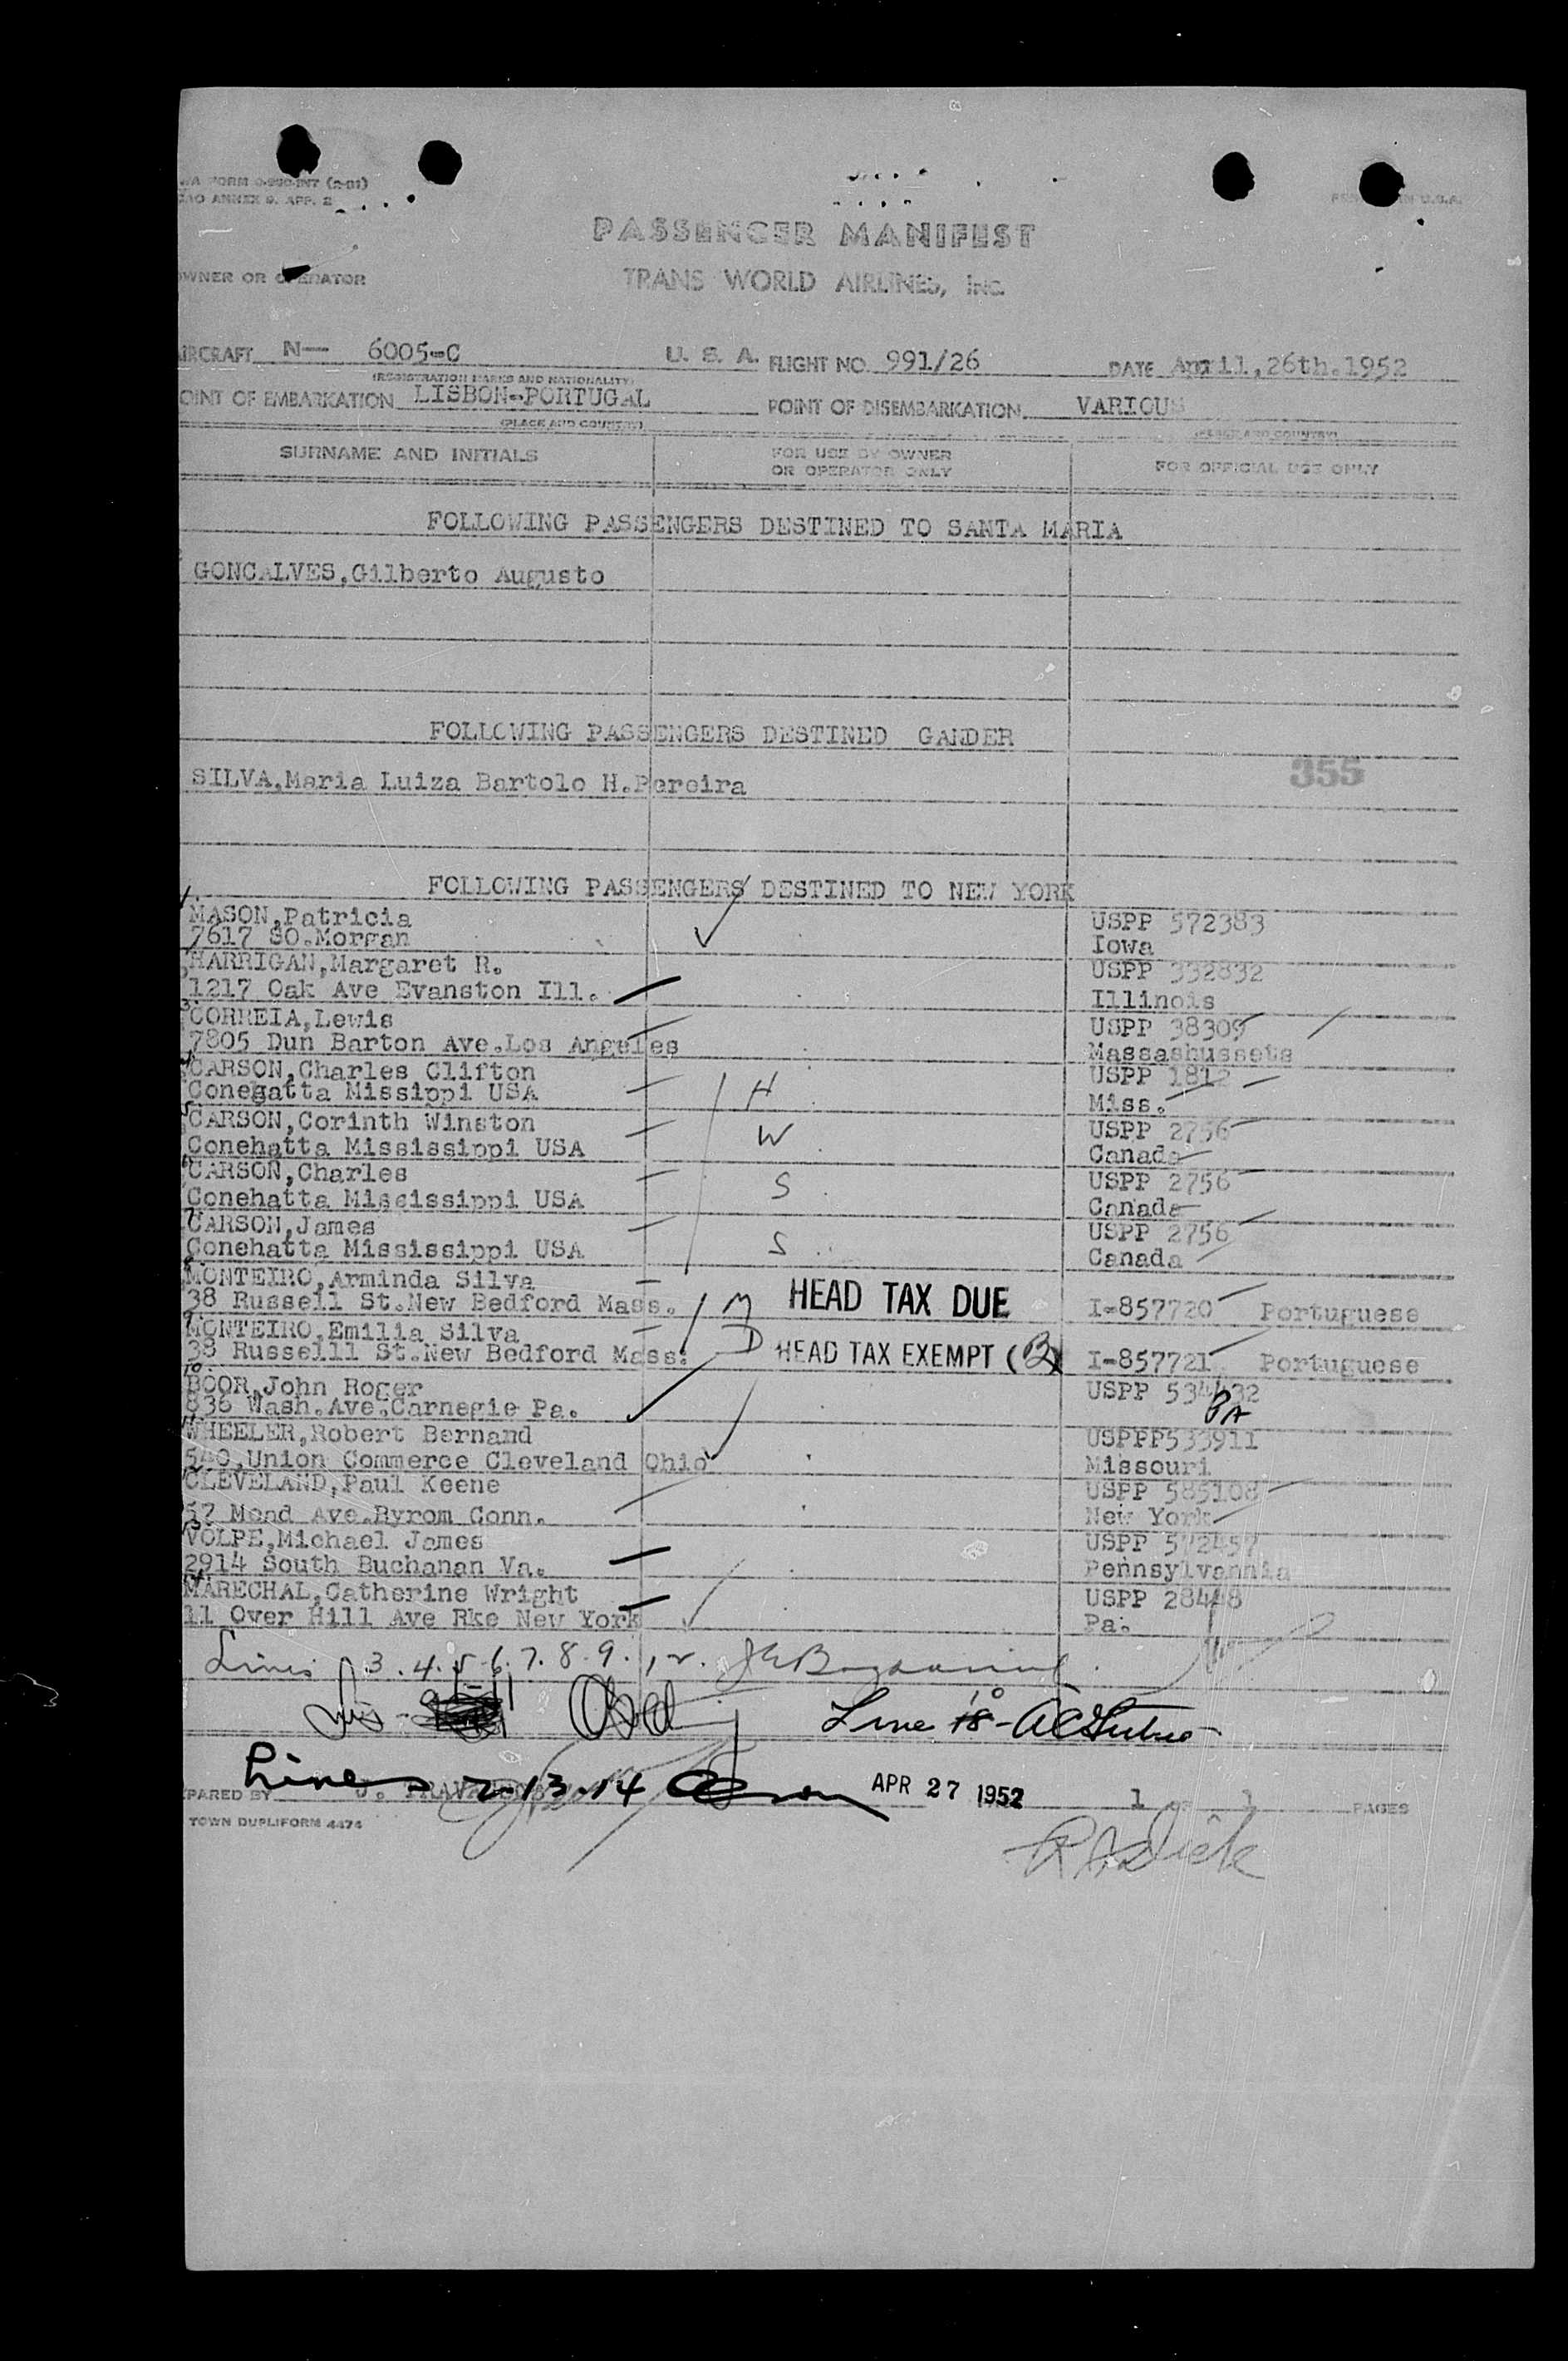 PASSENGER MANIFEST
TRANS WORLD AIRLINES, INC.
OWNER OR OPERATOR
AIRCRAFT N— 6005-C U. S. A. FLIGHT NO. 991/26 DATE April,26th.1952
(REGISTRATION MARKS AND NATIONALITY)
POINT OF EMBARKATION LISBON-PORTUGAL POINT OF DISEMBARKATION VARIOUS
(PLACE AND COUNTRY) (PLACE AND COUNTRY)
SURNAME AND INITIALS FOR USE BY OWNER OR OPERATOR ONLY FOR OFFICIAL USE ONLY
FOLLOWING PASSENGERS DESTINED TO SANTA MARIA
GONCALVES,Gilberto Augusto
FOLLOWING PASSENGERS DESTINED GANDER
SILVA,Maria Luiza Bartolo H.Pereira 355
FOLLOWING PASSENGERS DESTINED TO NEW YORK
MASON,Patricia USPP 572383
7617 SO.Morgan Iowa
HARRIGAN,Margaret R. USPP 332832
1217 Oak Ave Evanston Ill. Illinois
CORREIA,Lewis USPP 38309
7805 Dun Barton Ave.Los Angeles Massashussets
CARSON,Charles Clifton USPP 1812
Conegatta Missippi USA H Miss.
CARSON,Corinth Winston USPP 2756
Conehatta Mississippi USA W Canada
CARSON,Charles USPP 2756
Conehatta Mississippi USA S Canada
CARSON,James USPP 2756
Conehatta Mississippi USA S Canada
MONTEIRO,Arminda Silva
38 Russell St.New Bedford Mass. M HEAD TAX DUE I-857720 Portuguese
MONTEIRO,Emilia Silva
38 Russelll St.New Bedford Mass. D HEAD TAX EXEMPT (B) I-857721 Portuguese
BOOR,John Roger USPP 534432
836 Wash.Ave.Carnegie Pa. PA
WHEELER,Robert Bernand USPPP533911
540,Union Commerce Cleveland Ohio Missouri
CLEVELAND,Paul Keene USPP 585108
57 Mead Ave.Byrom Conn. New York
VOLPE,Michael James USPP 572457
2914 South Buchanan Va. Pennsylvannia
MARECHAL,Catherine Wright USPP 28448
11 Over Hill Ave Rke New York Pa.
Lines 3.4.5.6.7.8.9.12.
Line 10
Lines 2-13-14 APR 27 1952 1 OF 1 PAGES
TOWN DUPLIFORM 4474